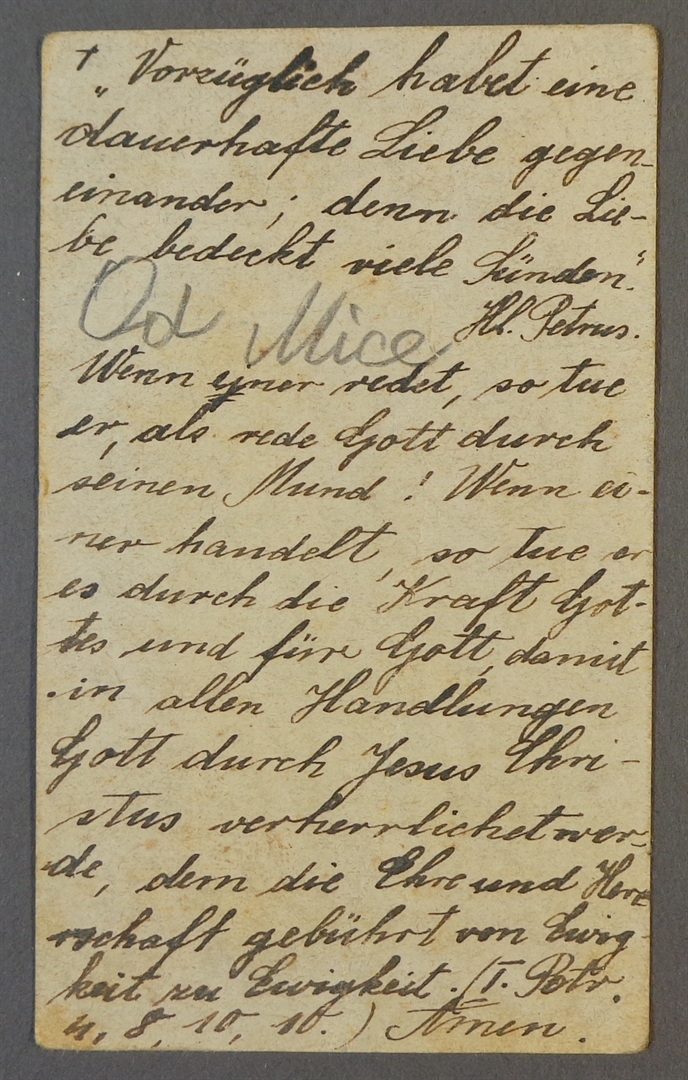 † „Vorzüglich habet eine
dauerhafte Liebe gegen-
einander; denn die Lie-
be bedeckt viele Sünden“.
Hl. Petrus.
Od Mice
Wenn einer redet, so tue
er, als rede Gott durch
seinen Mund! Wenn ei-
ner handelt, so tue er
es durch die Kraft Got-
tes und für Gott, damit
in allen Handlungen
Gott durch Jesus Chri-
stus verherrlichet wer-
de, dem die Ehre und Herr
rschaft gebührt von Ewig-
keit zu Ewigkeit. (I. Petr.
4, 8, 10, 10.) Amen.